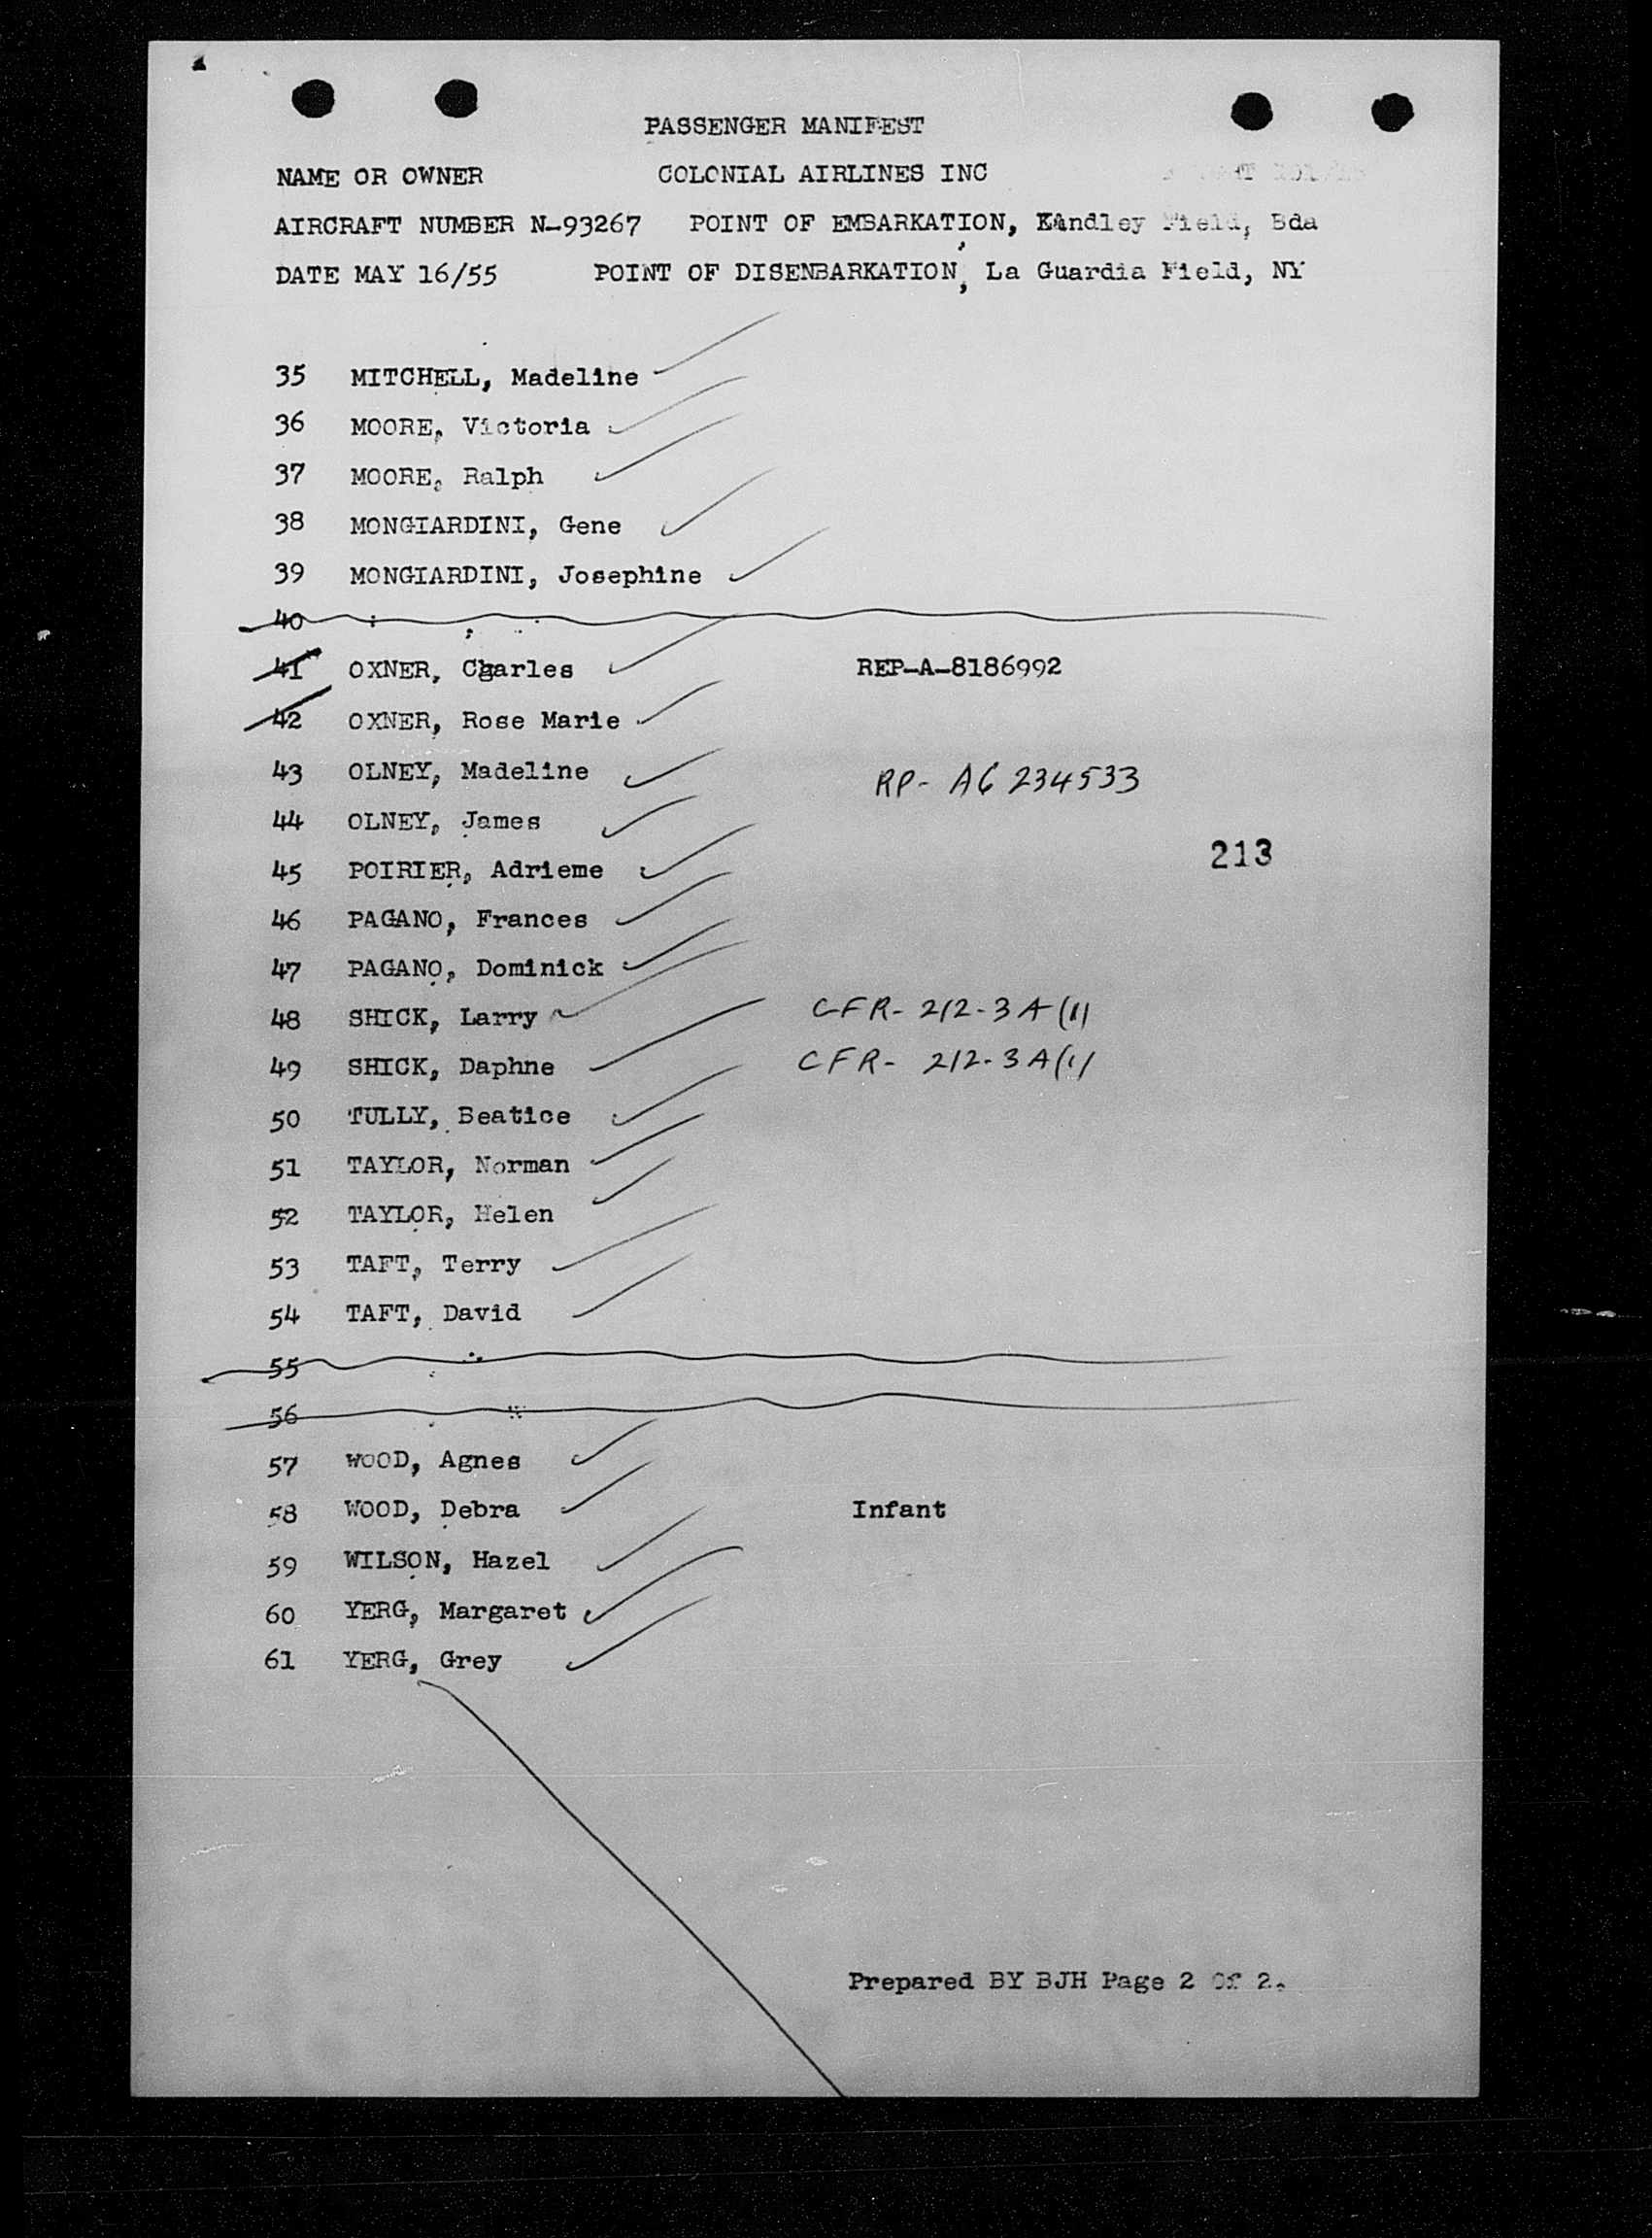 PASSENGER MANIFEST
NAME OR OWNER COLONIAL AIRLINES INC
AIRCRAFT NUMBER N-93267 POINT OF EMBARKATION, Kindley Field, Bda
DATE MAY 16/55 POINT OF DISENBARKATION, La Guardia Field, NY
35 MITCHELL, Madeline
36 MOORE, Victoria
37 MOORE, Ralph
38 MONGIARDINI, Gene
39 MONGIARDINI, Josephine
40
41 OXNER, Charles REP-A-8186992
42 OXNER, Rose Marie
43 OLNEY, Madeline RP- A6 234533
44 OLNEY, James
213
45 POIRIER, Adrieme
46 PAGANO, Frances
47 PAGANO, Dominick
48 SHICK, Larry CFR- 212-3A(1)
49 SHICK, Daphne CFR- 212-3A(1)
50 TULLY, Beatice
51 TAYLOR, Norman
52 TAYLOR, Helen
53 TAFT, Terry
54 TAFT, David
55
56
57 WOOD, Agnes
58 WOOD, Debra Infant
59 WILSON, Hazel
60 YERG, Margaret
61 YERG, Grey
Prepared BY BJH Page 2 Of 2.